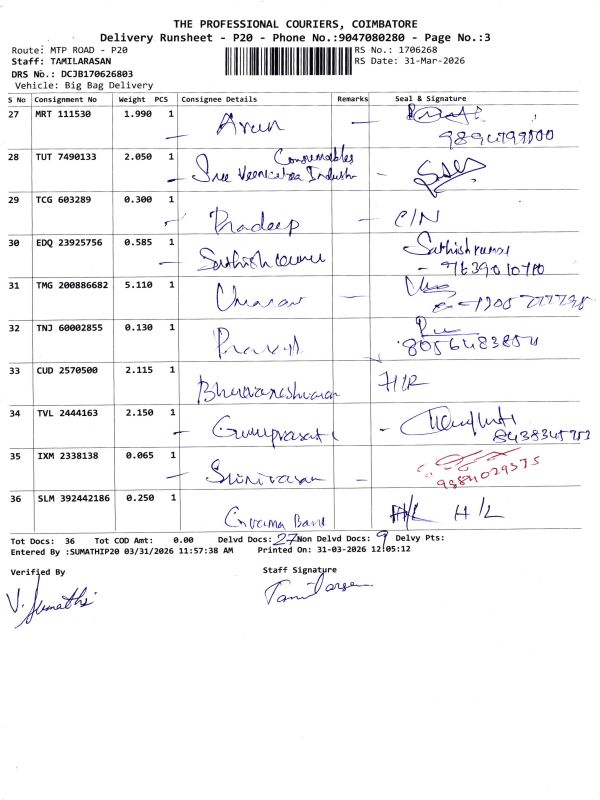 THE PROFESSIONAL COURIERS, COIMBATORE
Delivery Runsheet - P20 - Phone No.:9047080280 - Page No.:3
Route: MTP ROAD - P20
RS No.: 1706268
Staff: TAMILARASAN
RS Date: 31-Mar-2026
DRS No.: DCJB170626803
Vehicle: Big Bag Delivery
S No Consignment No Weight PCS Consignee Details Remarks Seal & Signature
27 MRT 111530 1.990 1 Arun
28 TUT 7490133 2.050 1 Sree Industr
Consumables
29 TCG 603289 0.300 1 Pradeep C/N
30 EDQ 23925756 0.585 1 Sathishkumar Sathishkumar
9639010710
31 TMG 200886682 5.110 1
32 TNJ 60002855 0.130 1
8056483854
33 CUD 2570500 2.115 1 Bhuvaneshwaran H/R
34 TVL 2444163 2.150 1 Guruprasath
8438345753
35 IXM 2338138 0.065 1 Srinivasan
9384029375
36 SLM 392442186 0.250 1 H/L H/L
Tot Docs: 36 Tot COD Amt: 0.00 Delvd Docs: 27 Non Delvd Docs: 9 Delvy Pts:
Entered By :SUMATHIP20 03/31/2026 11:57:38 AM Printed On: 31-03-2026 12:05:12
Verified By
Staff Signature
V. Sumathi
Tamilarasan